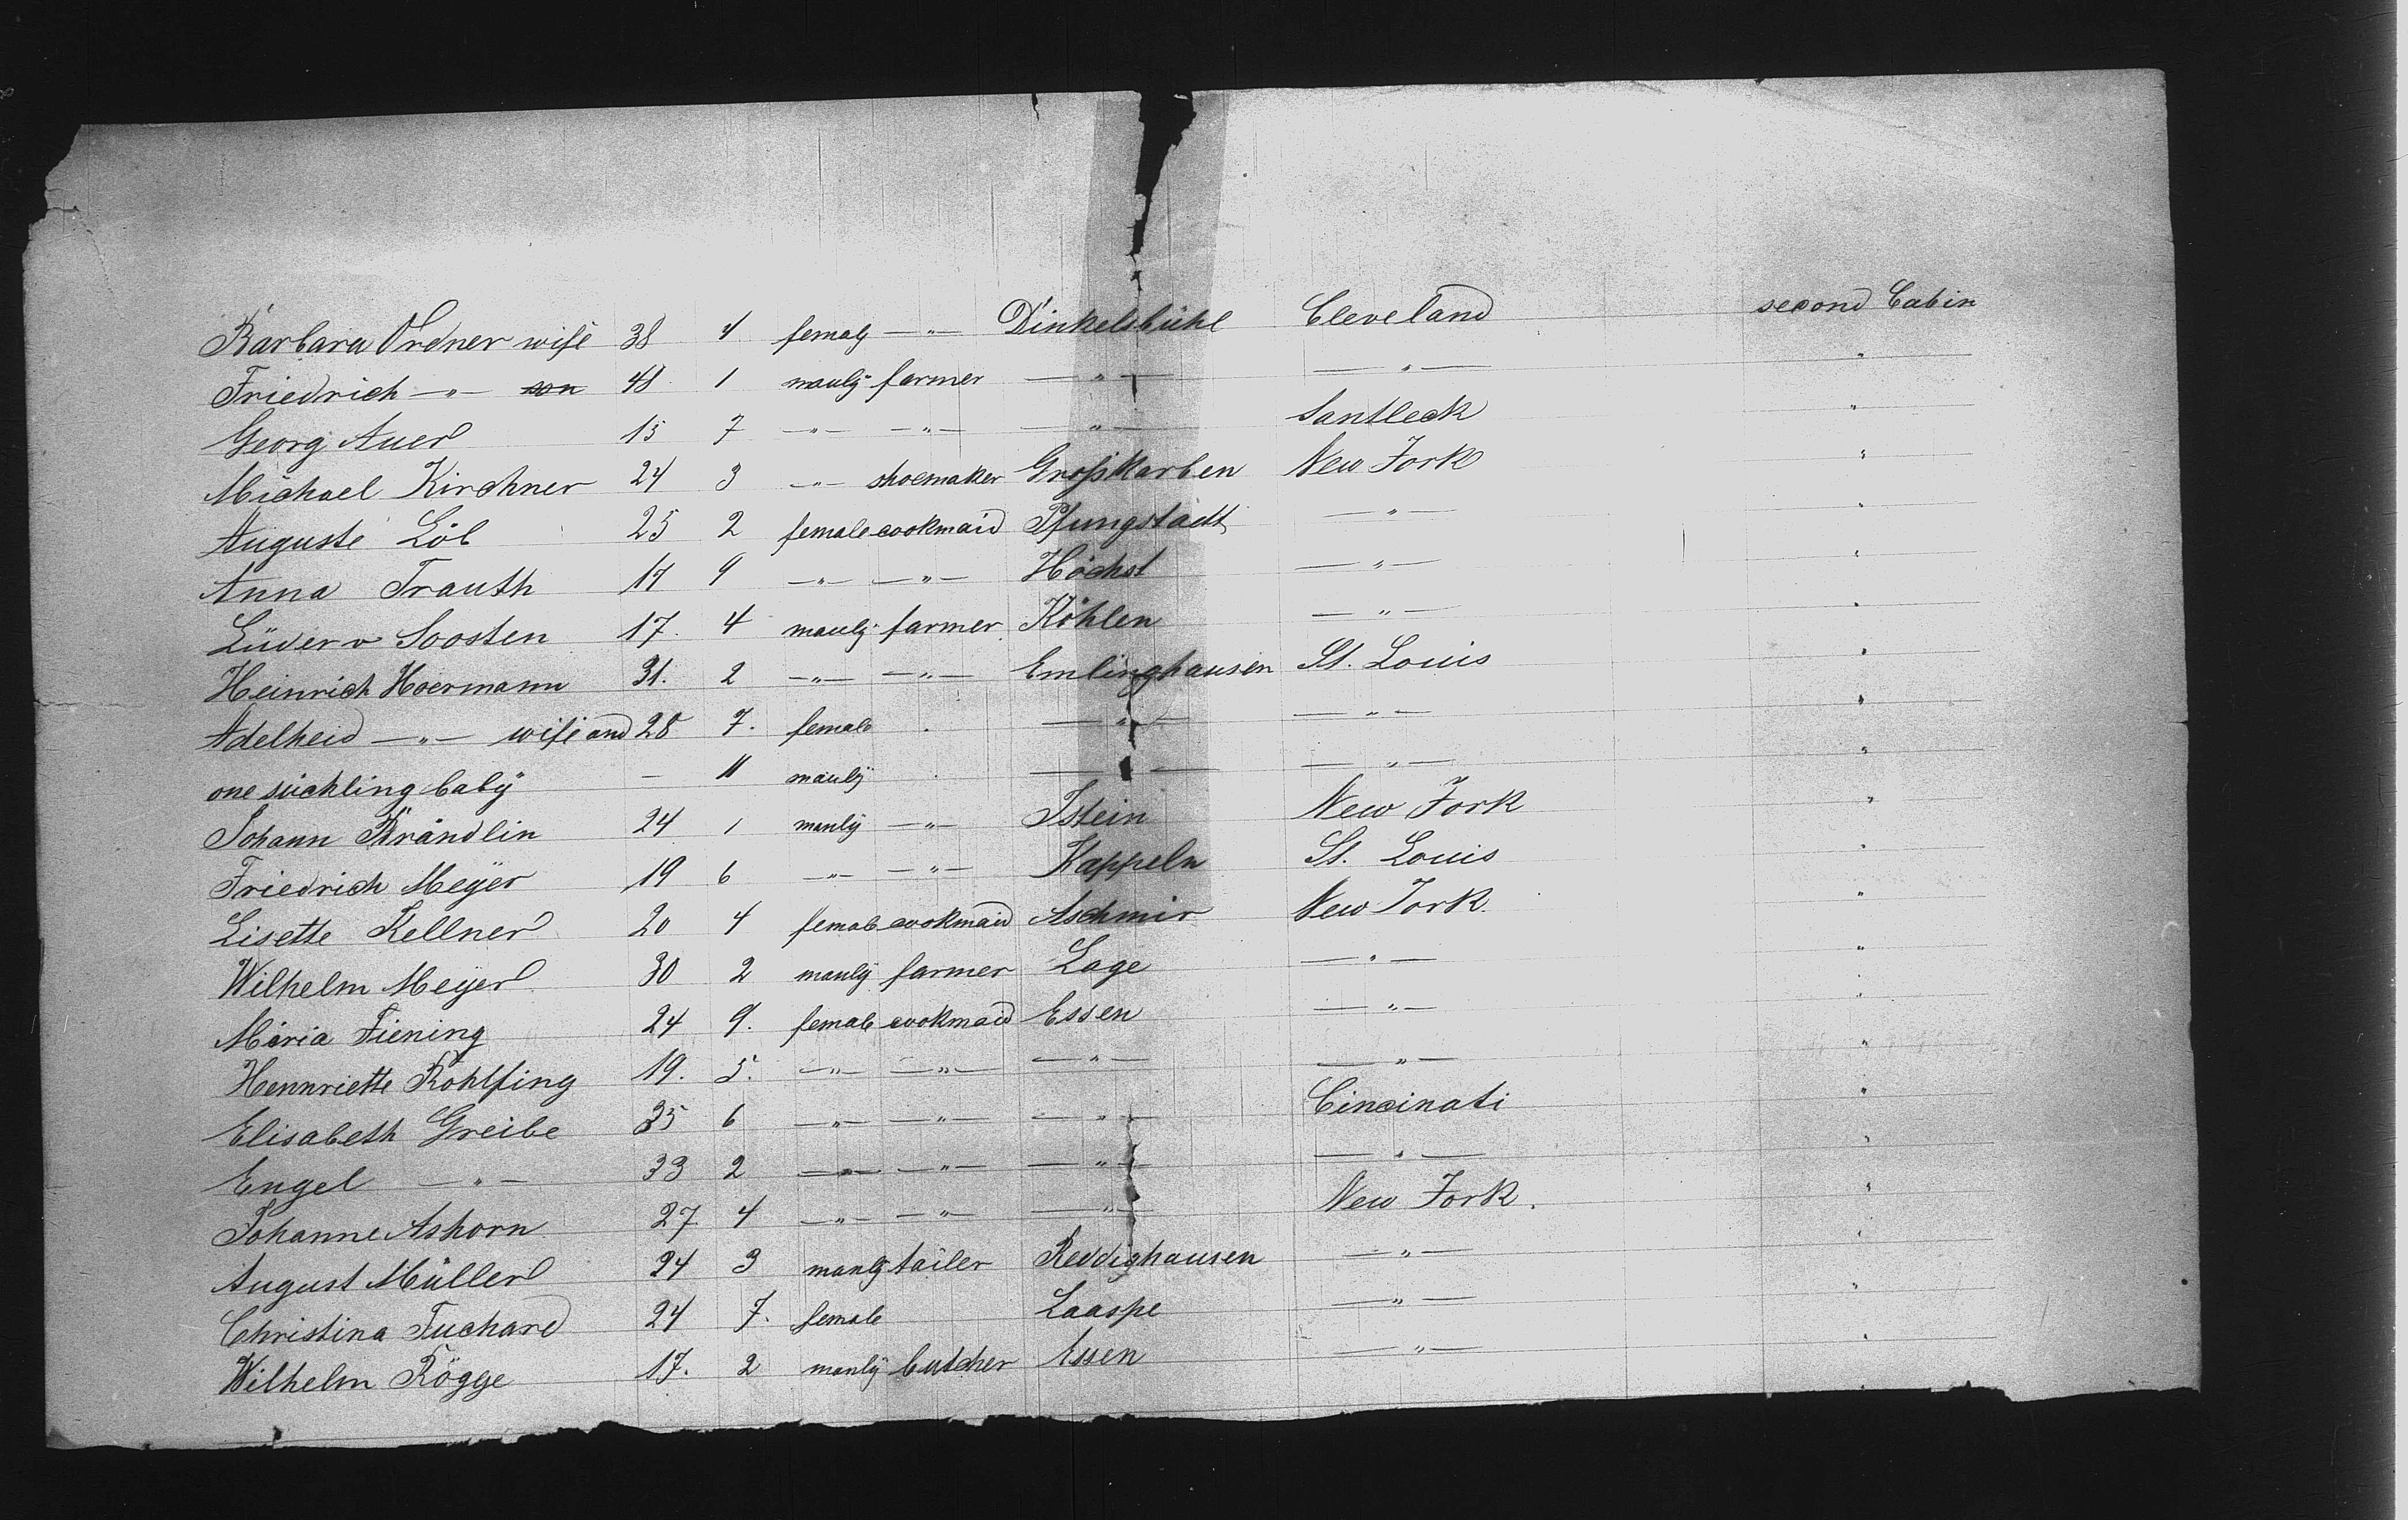 Barbara Ordner wife 38 4 femaly —„— Dinkelsbühl Cleveland second Cabin
Friedrich —„— son 48 1 manly farmer —„— —„— „
Georg Auer 15 7 —„— —„— —„— Santleck „
Michael Kirchner 24 3 —„— shoemaker Großkarben New York „
Auguste Löb 25 2 female cookmaid Pfungstadt —„— „
Anna Trauth 17 9 —„— —„— Höchst —„— „
Lüder v Soosten 17. 4 manly farmer Köhlen —„— „
Heinrich Hoermann 31. 2 —„— —„— Emlinghausen St. Louis „
Adelheid —„— wife and 28 7. female —„— —„— „
one suckling baby — 11 manly —„— —„— „
Johann Brändlin 24 1 manly —„— Istein New York „
Friedrich Meyer 19 6 —„— —„— Kappeln St. Louis „
Lisette Kellner 20 4 female cookmaid Aschmir New York. „
Wilhelm Meyer 30 2 manly farmer Lage —„— „
Maria Fiening 24 9. female cookmaid Essen —„— „
Hennriette Rohlfing 19. 5. —„— —„— —„— —„— „
Elisabeth Greibe 35 6 —„— —„— —„— Cincinati „
Engel —„— 33 2 —„— —„— —„— —„— „
Johanne Ashorn 27 4 —„— —„— —„— New York. „
August Müller 24 3 manly tailer Reddighausen —„— „
Christina Fuchard 24 7. female Laaspe —„— „
Wilhelm Rögge 17. 2 manly butcher Essen —„— „